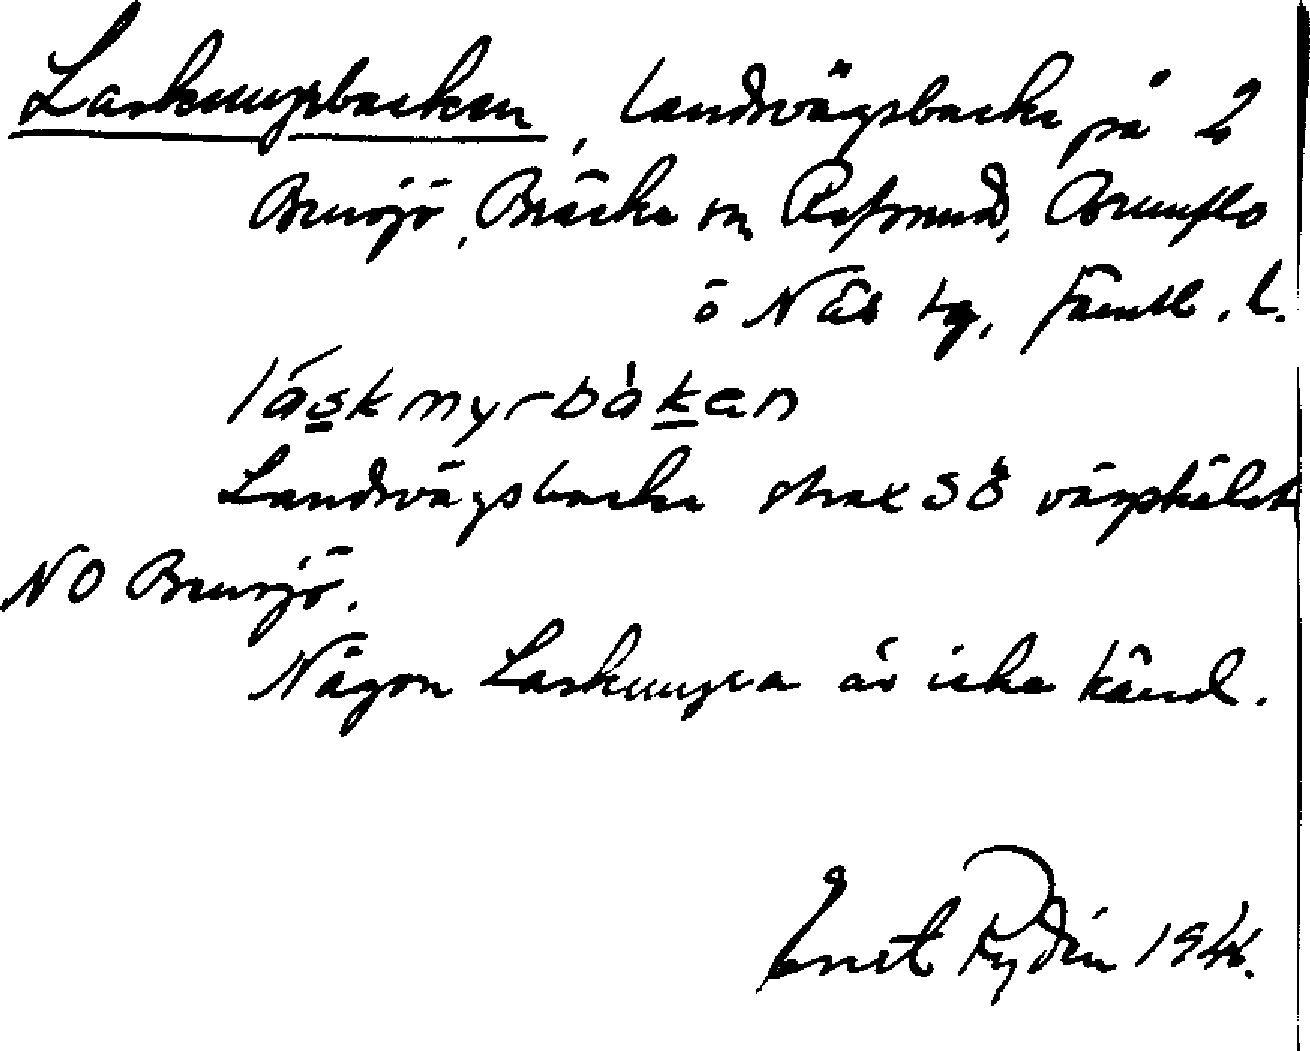 Laskmyrbacken, landsvägsbacke på 2
Brusjö, Bräcke sn, Refsund, Brunflo
o Näs tg, Jämtl. l.
láskmyrbàkan
Landsvägsbacke strax SÖ vägskälet
NO Brusjö.
Någon Laskmyra är icke känd.
Ernst Rydén 1944.